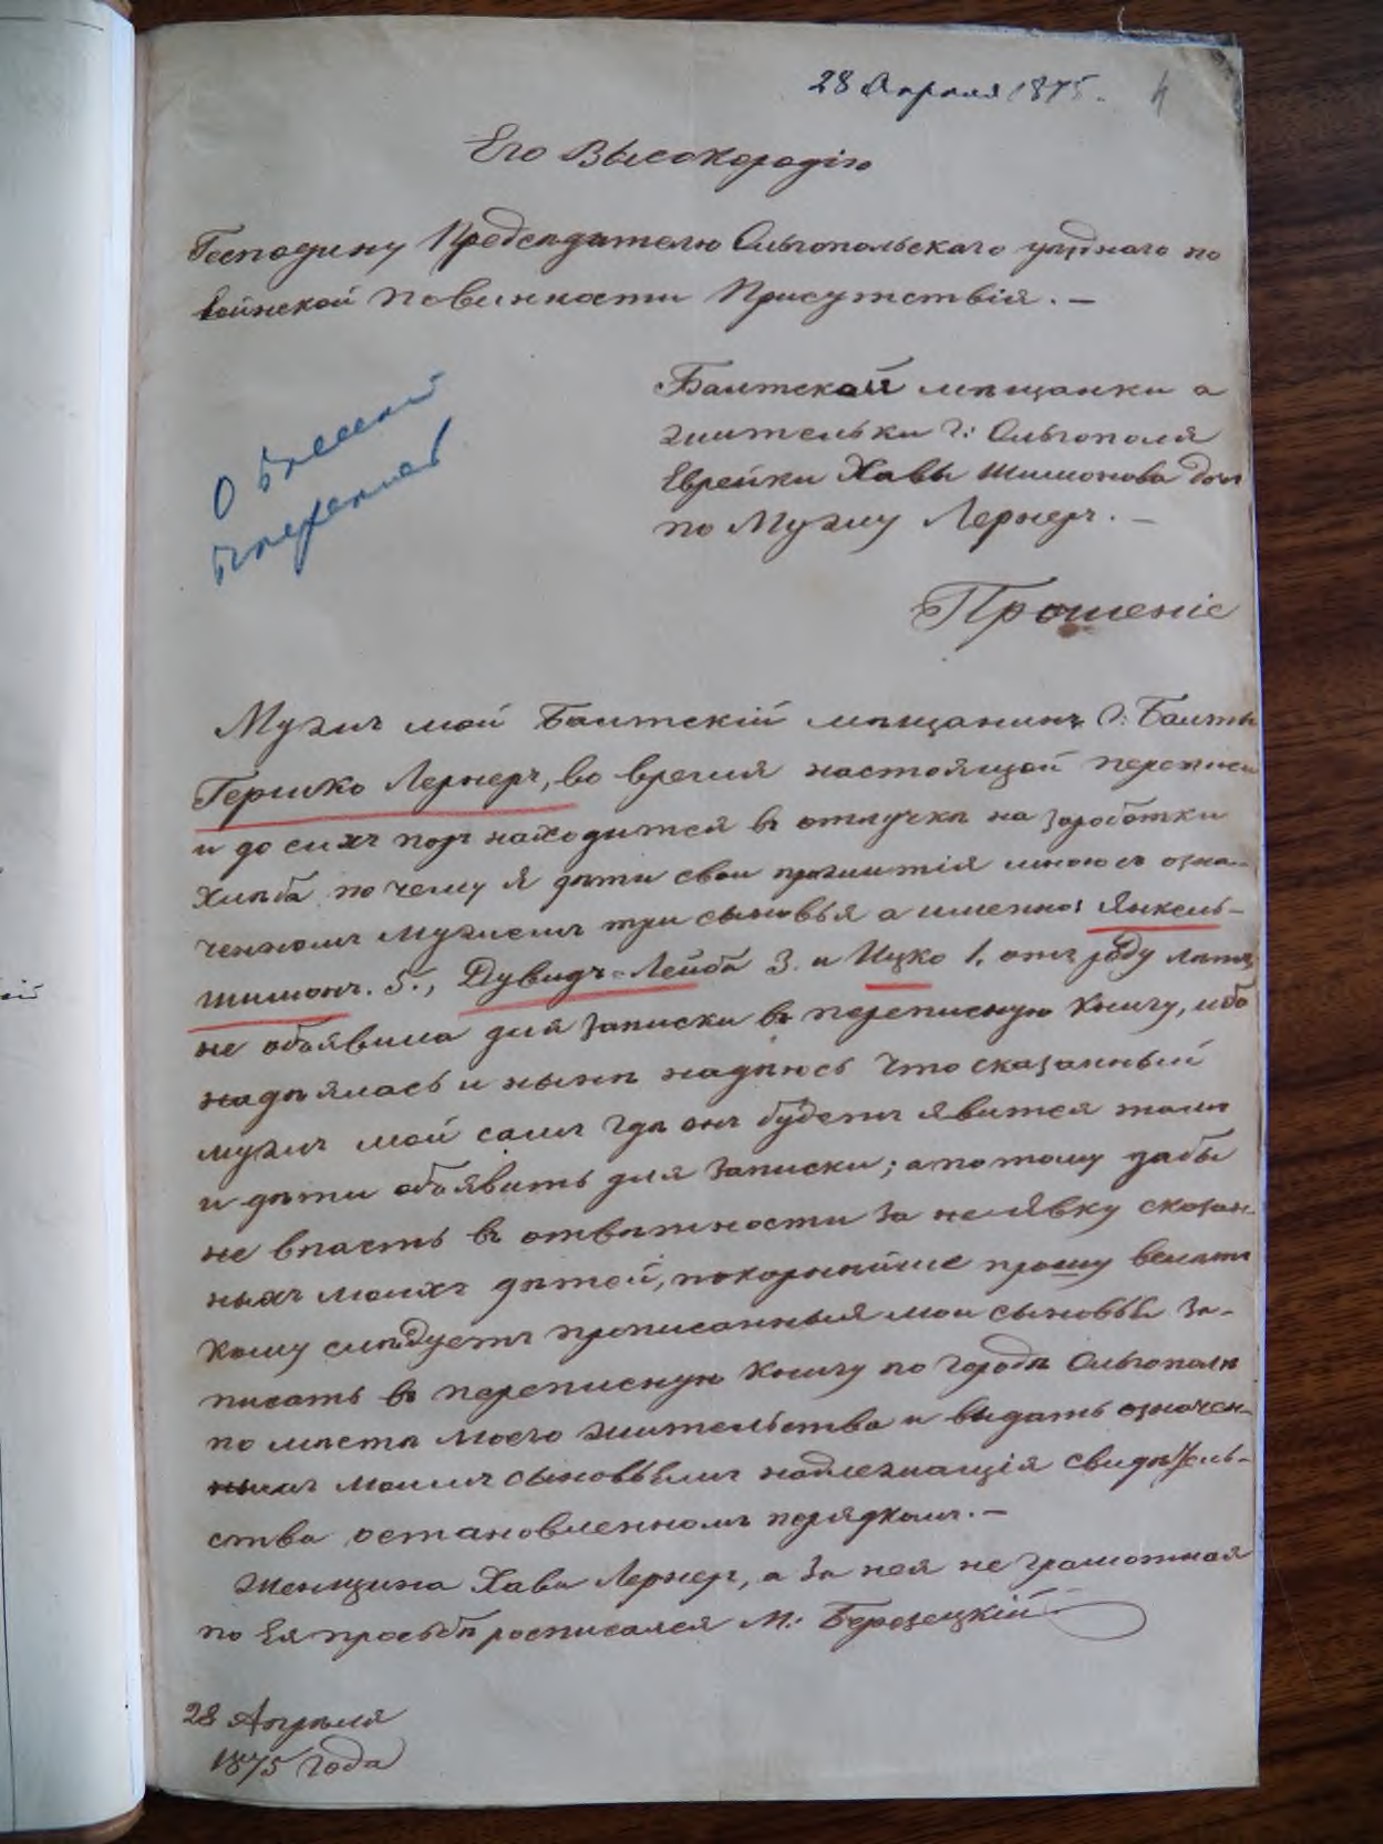 28 Апреля 1875.
4
Его Высокородію
Господину Предсѣдателю Ольгопольскаго уѣзднаго по
воинской повинности Присутствія. —
Балтской мѣщанки а
жительки г: Ольгополя
Еврейки Хавы Шимонова дочь
по Мужу Лернеръ. —
Прошеніе
Мужъ мой Балтскій мѣщанинъ г: Балты
Гершко Лернеръ, во время настоящой переписи
и до сихъ поръ находится въ отлучкѣ на заработки
хлѣба, почему я дѣти свои прожитія мною съ озна-
ченномъ мужемъ три сыновья а именно: Янкель-
Шимонъ. 5., Дувидъ-Лейба 3. и Ицко 1, отъ роду лѣтъ,
не обоявила для записки въ переписную книгу, ибо
надѣялась и нынѣ надѣюсь что сказанный
мужъ мой самъ гдѣ онъ будетъ явится тамъ
и дѣти обоявить для записки; а потому дабы
не впасть въ отвѣтности за неявку сказан-
ныхъ моихъ дѣтей, покорнѣйше прошу велѣть
кому слѣдуетъ прописанныя мои сыновья за-
писать въ переписную книгу по городѣ Ольгополѣ
по мѣстѣ моего жительства и выдать означен-
нымъ моимъ сыновьямъ надлежащія свидѣтель-
ства остановленномъ порядкомъ. —
Женщина Хава Лернеръ, а за нея не грамотная
по Ея просьбѣ росписался М: Березецкій
28 Апрѣля
1875 года